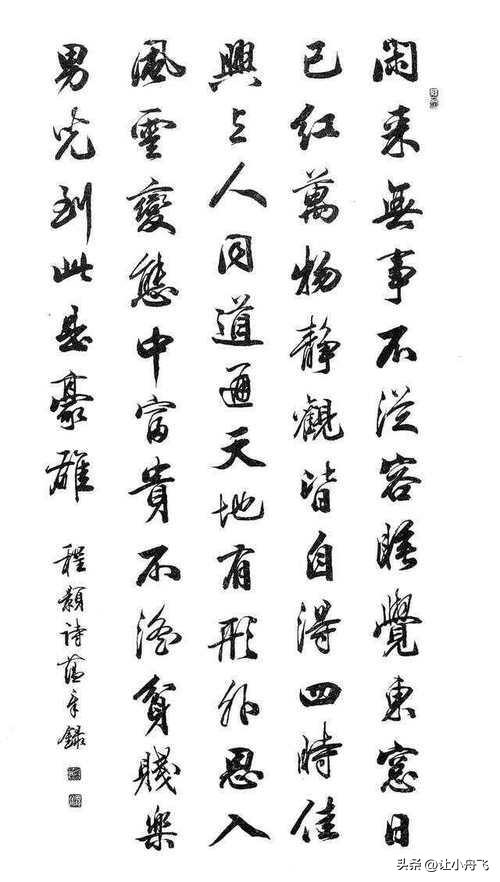 閑来無事不從容睡覺東窓日
已红萬物静觀皆自得四時佳
興与人同道通天地有形外思入
風雲變態中富貴不淫貧賤樂
男児到此是豪雄
程顥詩錄
头条 @让小舟飞